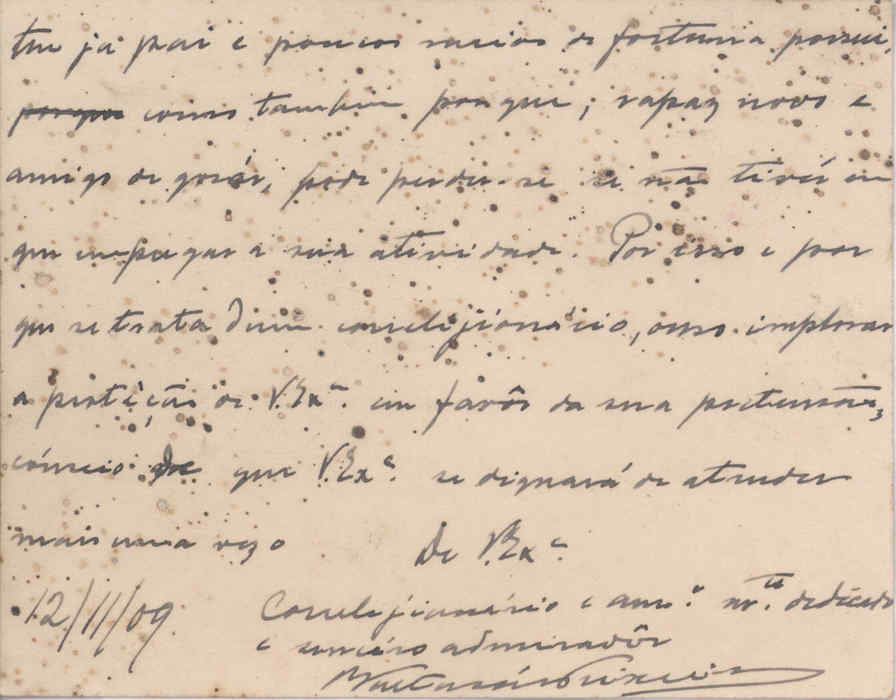 tem já pai e poucos meios de fortuna possui,
porque como tambem porque, rapaz novo e
amigo de gosár, pode perder-se se não tivér em
que empregar a sua atividade. Por isso e por
que se trata dum correligionário, ouso implorar
a protéção de V. Exª. em favôr da sua pretensão,
cónscio de que V. Exª. se dignará de atender
mais uma vez o
De V. Exª.
12/11/09. Correligionário e amº. mtº. dedicado
e sincéro admiradôr
Teixeira